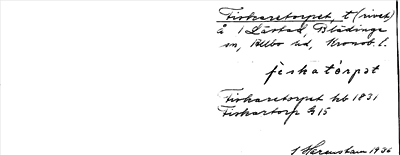 Fiskaretorpet, t (rivet)
å 1 Lästad, Blädinge
sn, Allbo hd, Kronob. l.
feskatórpet
Fiskaretorpet hb 1831
Fiskartorp G 15
1936